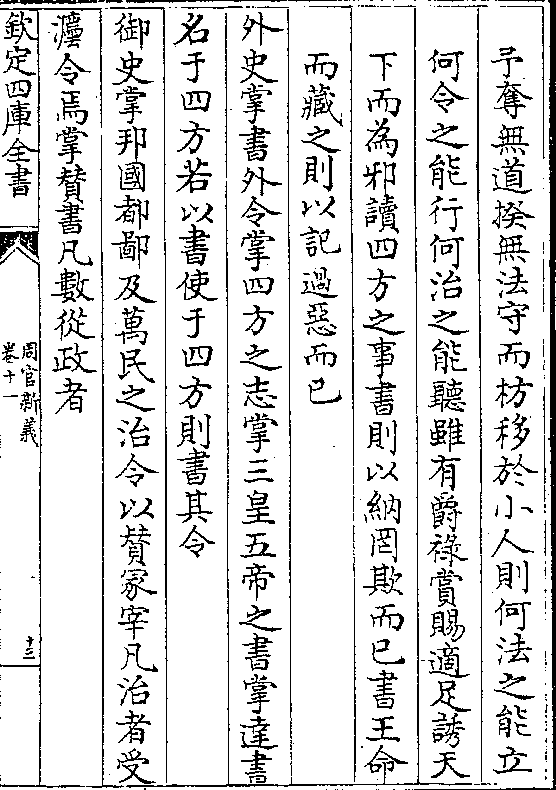 予奪無道揆無法守而枋移於小人則何法之能立
何令之能行何治之能聽雖有爵祿賞賜適足誘天
下而為邪讀四方之事書則以納罔欺而已書王命
而藏之則以記過惡而已
外史掌書外令掌四方之志掌三皇五帝之書掌達書
名于四方若以書使于四方則書其令
御史掌邦國都鄙及萬民之治令以賛冡宰凡治者受
灋令焉掌賛書凡數從政者
欽定四庫全書
周官新義
卷十一
十三